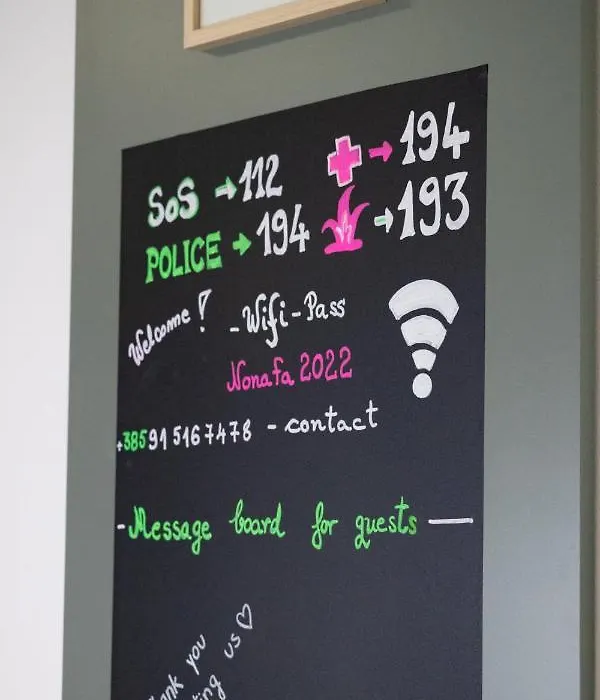 SoS → 112
→ 194
POLICE → 194
→ 193
Welcome!
- Wifi - Pass
Nonafa 2022
+385 91 5167478 - contact
- Message board for guests —
you
us ♡